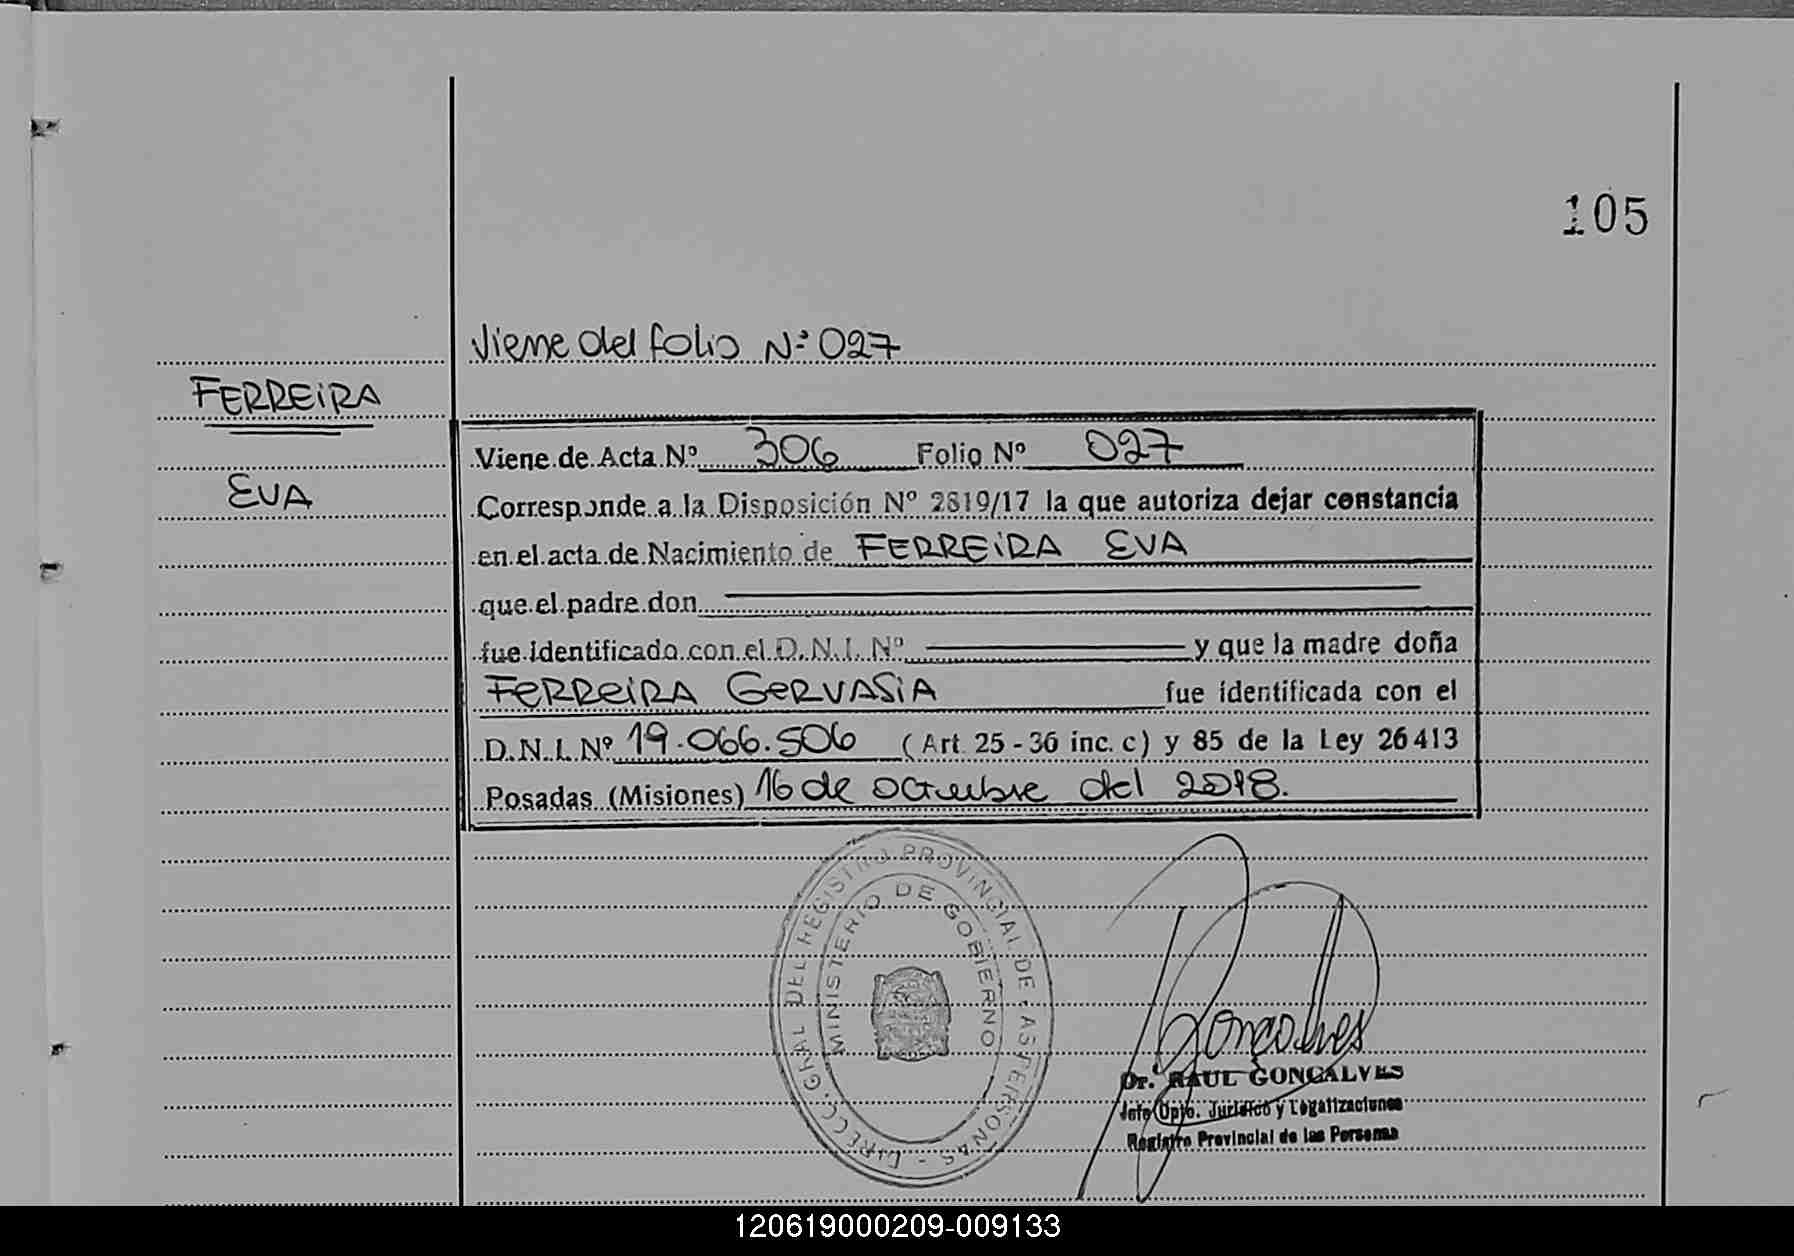 105
Viene del folio Nº 027
FERREIRA
EVA
Viene de Acta Nº 306 Folio Nº 027
Corresponde a la Disposición Nº 2819/17 la que autoriza dejar constancia
en el acta de Nacimiento de FERREIRA EVA
que el padre don
fue identificado con el D.N.I. Nº y que la madre doña
FERREIRA GERVASIA fue identificada con el
D.N.I. Nº 19.066.506 (Art. 25 - 36 inc. c) y 85 de la Ley 26413
Posadas (Misiones) 16 de octubre del 2018.
DIRECC. GRAL DEL REGISTRO PROVINCIAL DE LAS PERSONAS -
MINISTERIO DE GOBIERNO
Goncalves
Dr. RAUL GONCALVES
Jefe Dpto. Jurídico y Legalizaciones
Registro Provincial de las Personas
120619000209-009133